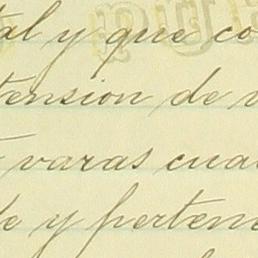 al y que co
tension de
varas cua
de y perten